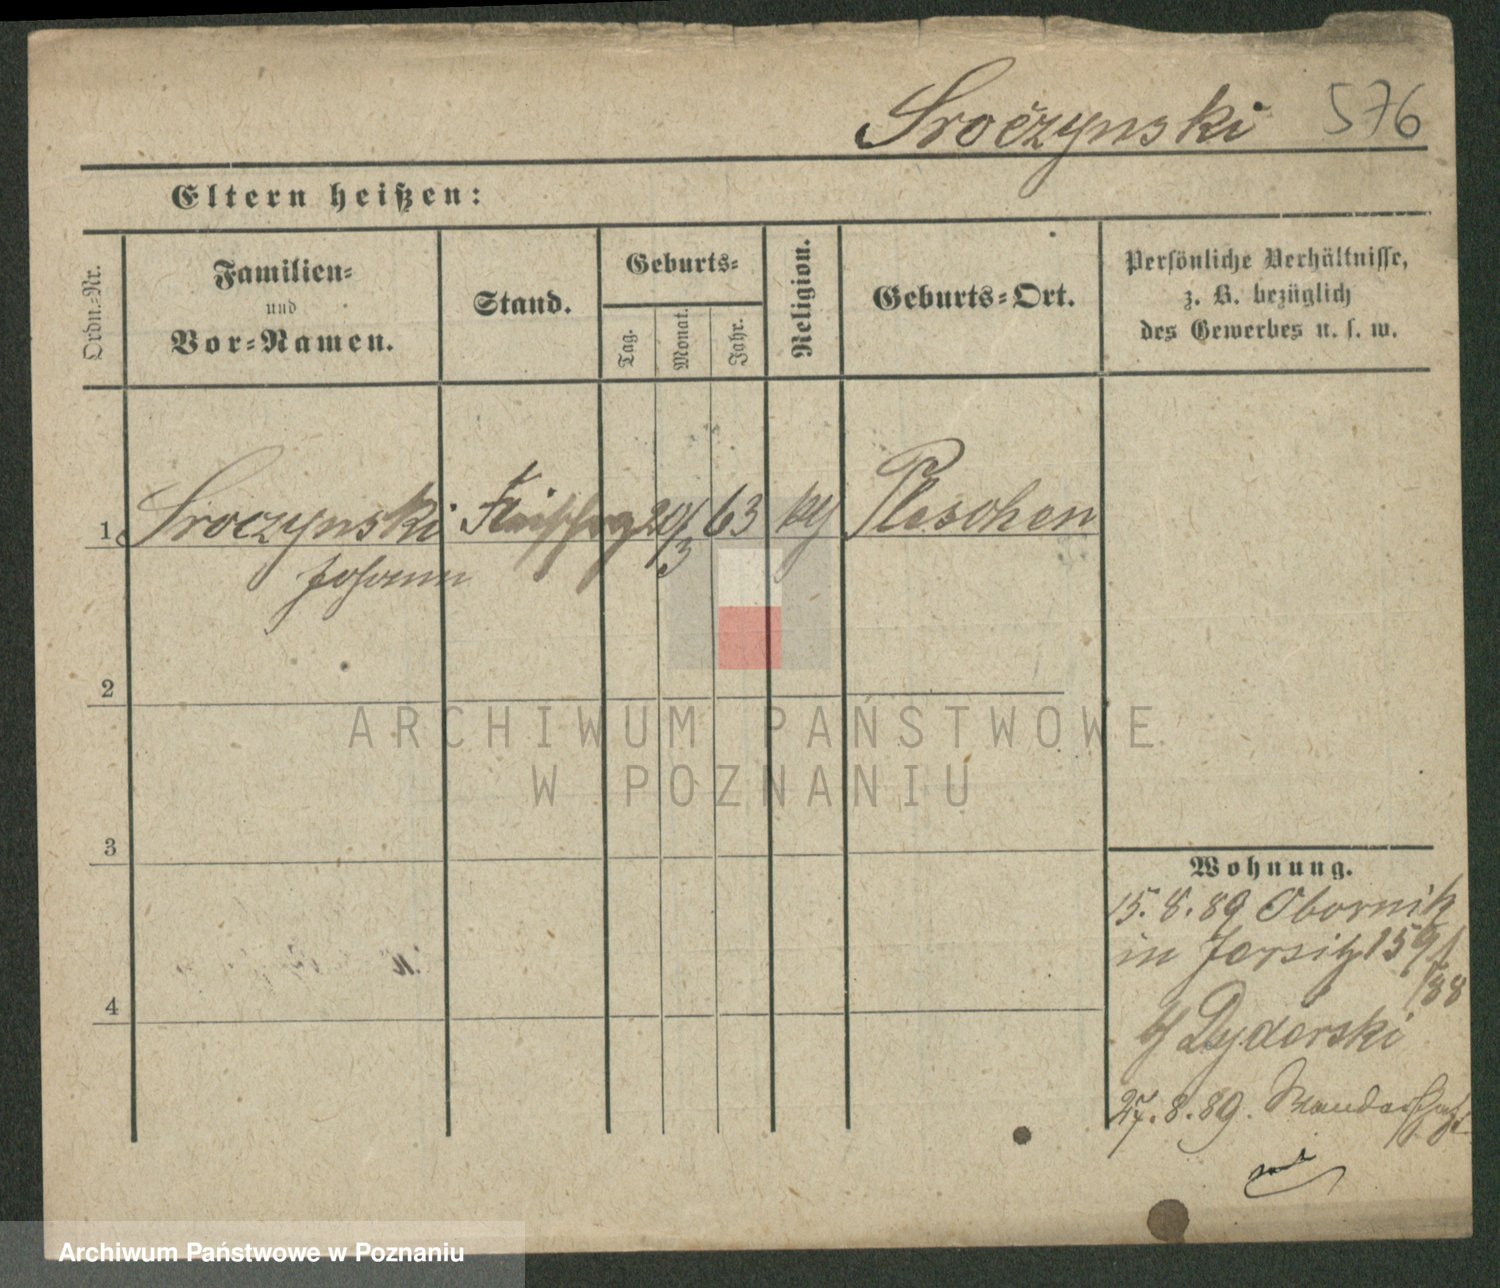 Sroczynski 576
Eltern heißen:
Ordn.-Nr.
Familien-
und
Vor-Namen.
Stand.
Geburts-
Tag.
Monat.
Jahr.
Religion.
Geburts-Ort.
Persönliche Verhältnisse,
z. B. bezüglich
des Gewerbes u. s. w.
1 Sroczynski 20/3 63 Pleschen
Johann
2
3
4
Wohnung.
15.8.89 Obornik
in Jersitz 159/
88
Dyderski
27.8.89. Wanderschaft
ARCHIWUM PAŃSTWOWE
W POZNANIU
Archiwum Państwowe w Poznaniu